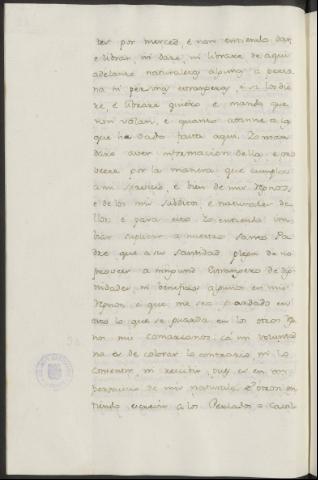 ber por merced, e non entiendo dar,
e librar, ni dare, ni librare de aqui
adelante naturaleza alguna a perso
na ni personas estrangeras, e si las die
re, e librare quiero e mando que
non valan, e quanto atanne a lo
que he dado fasta aqui, Yo man
daré aver informacion dello, e pro
veere por la manera que cumpla
a mi servicio, e bien de mis Reynos
e de los mis subditos e naturales de
llos: e para esto Yo entiendo im
biar suplicar a nuestro Santo Pa
dre que a su Santidad plega de no
proveer a ningund Estrangero de di
nidades, ni beneficios algunos en mis
Reynos, e que me sea guardado en
esto lo que se guarda en los otros Re
nos mis comarcanos: ca mi volunt
no es de tolerar lo contrario, ni lo
consentir, ni recibir, pues es en
perjuicio de mis naturales. E otrosi en
tiendo escrevir a los Perlados e Cavil